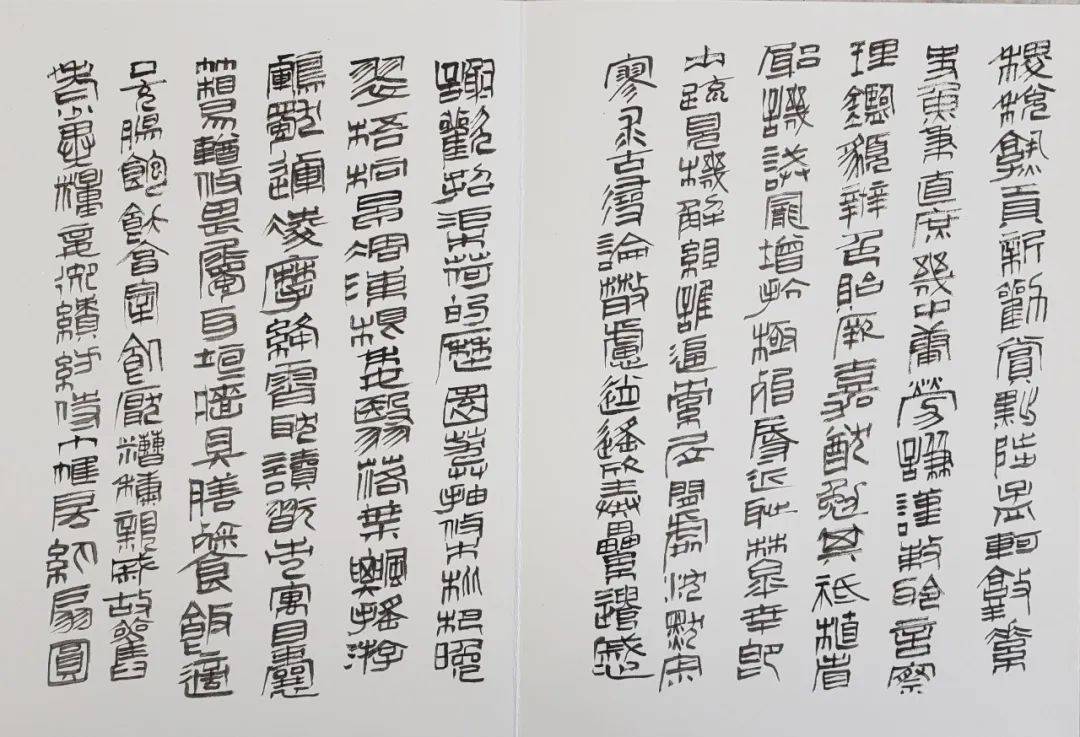 稷稅熟貢新勸賞黜陟孟軻敦素
史魚秉直庶幾中庸勞謙謹敕聆音察
理鑑貌辨色貽厥嘉猷勉其祗植省
躬譏誡寵增抗極殆辱近恥林皋幸即
兩疏見機解組誰逼索居閒處沈默寂
寥求古尋論散慮逍遙欣奏累遣慼
謝歡招渠荷的歷園莽抽條枇杷晚
翠梧桐早凋陳根委翳落葉飄搖游
鵾獨運凌摩絳霄耽讀翫市寓目囊
箱易輶攸畏屬耳垣牆具膳餐飯適
口充腸飽飫享宰飢厭糟糠親戚故舊
老少異糧妾御績紡侍巾帷房紈扇圓